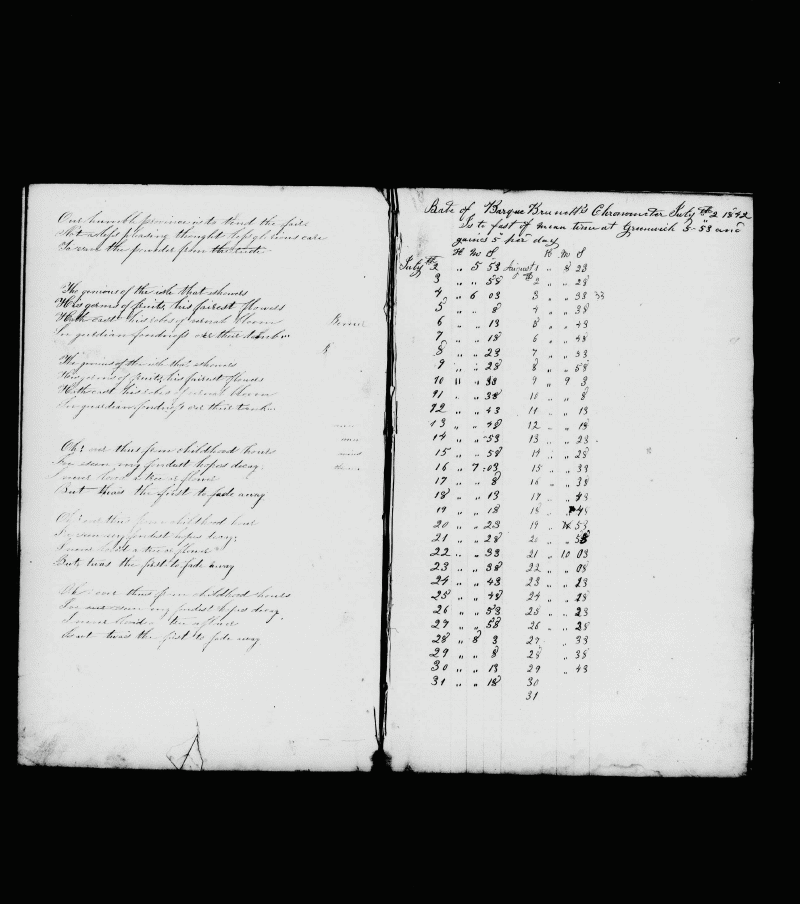 Our humble province is to tend the fair
Not a less pleasing thought less glorious care
To save the powder from
The genious of the isle that showers
His germs of fruits, his fairest flowers
Hath cast his robe of vernal bloom
In guardian fondness oer their tomb
The genious of the isle that showers
His germs of fruits, his fairest flowers
Hath cast his robe of vernal bloom
In guardian fondness oer their tomb
Oh! ever thus from childhood hours
I've seen my fondest hopes decay
I never loved a tree or flower
But twas the first to fade away
Oh! ever thus from childhood hours
I've seen my fondest hopes decay;
I never loved a tree or flower
But twas the first to fade away
Oh! ever thus from childhood hours
I've seen my fondest hopes decay
I never loved a tree or flower
But twas the first to fade away
Rate of Barque Brunett's Chronometer July 2 1842
Is to fast of mean time at Greenwich 5-53 and
gains 5" per day
H M S H M S
July 2 " 5 53 August 1 " 8 23
3 " " 58 2 " " 28
4 " 6 03 3 " " 33 33
5 " " 8 4 " " 38
6 " " 13 5 " " 43
7 " " 18 6 " " 48
8 " " 23 7 " " 53
9 " " 28 8 " " 58
10 " " 33 9 " 9 3
11 " " 38 10 " " 8
12 " " 43 11 " " 13
13 " " 48 12 " " 18
14 " " 53 13 " " 23
15 " " 58 14 " " 28
16 " 7 03 15 " " 33
17 " " 8 16 " " 38
18 " " 13 17 " " 43
19 " " 18 18 " " 48
20 " " 23 19 " 53
21 " " 28 20 " " 58
22 " " 33 21 " 10 03
23 " " 38 22 " " 08
24 " " 43 23 " " 13
25 " " 48 24 " " 18
26 " " 53 25 " " 23
27 " " 58 26 " " 28
28 " 8 3 27 " " 33
29 " " 8 28 " " 38
30 " " 13 29 " " 43
31 " " 18 30
31